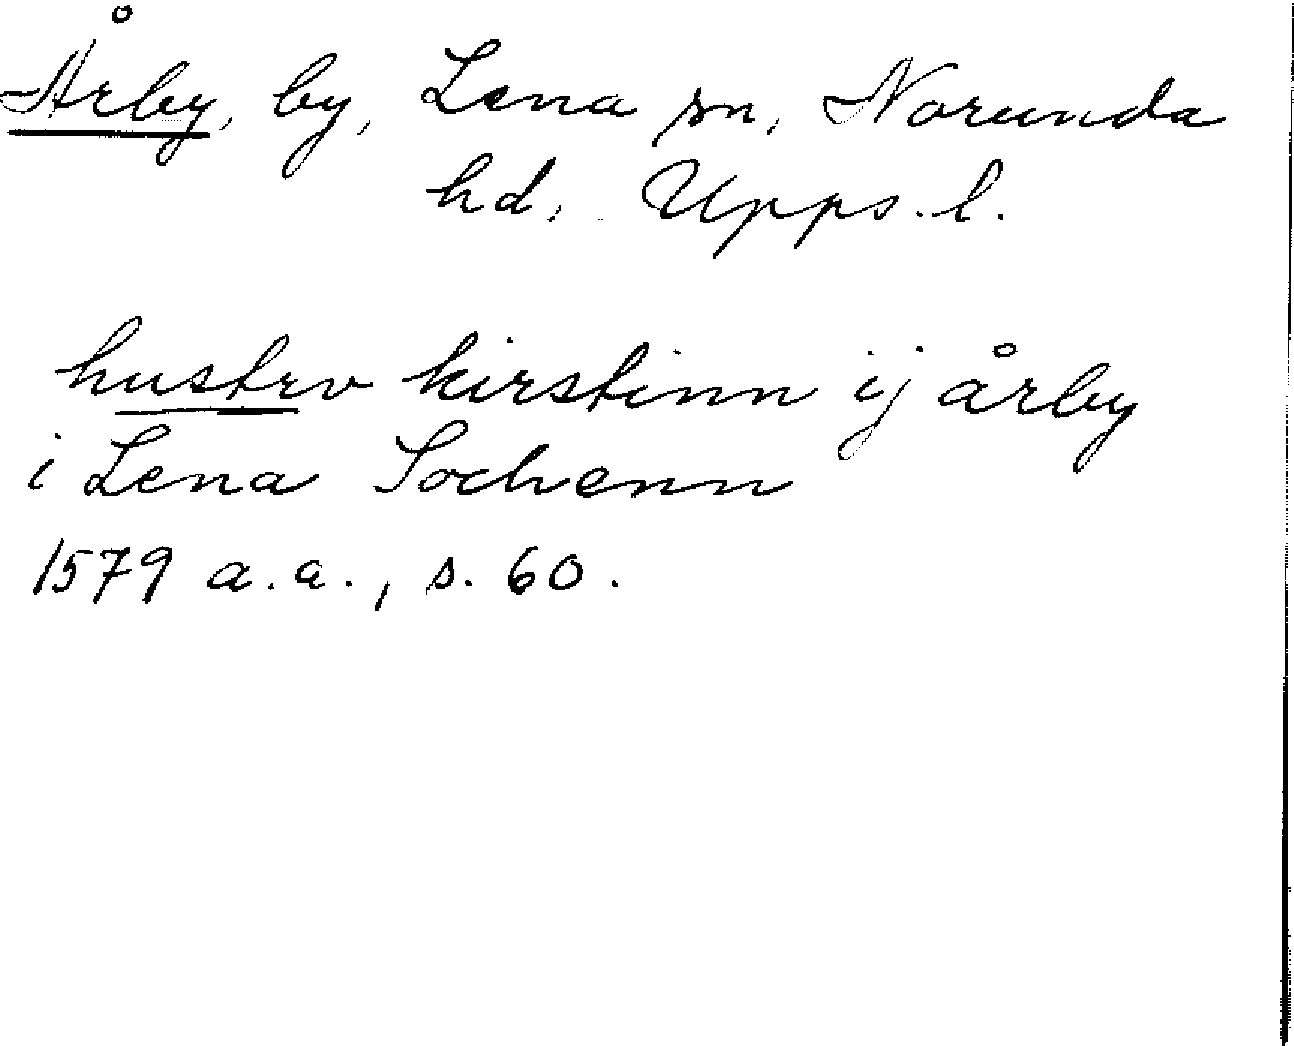 Årby, by, Lena sn, Norunda
hd, Upps. l.
hustrv kirstinn ij årby
i Lena Sochenn
1579 a.a., s. 60.